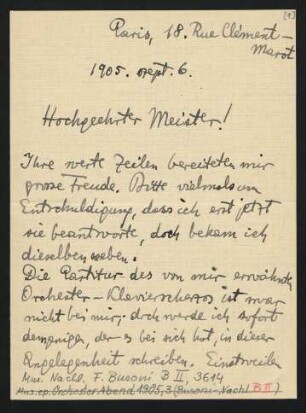 [1]
Paris, 18. Rue Clément-
Marot
1905. sept. 6.
Hochgeehrter Meister!
Ihre werte Zeilen bereiteten mir
grosse Freude. Bitte vielmals um
Entschuldigung, dass ich erst jetzt
sie beantworte, doch bekam ich
dieselben soeben.
Die Partitur des von mir erwähnten
Orchester-Klavierscherzos ist zwar
nicht bei mir; doch werde ich sofort
demjenigen, der es bei sich hat, in dieser
Angelegenheit schreiben. Einstweilen
Mus. Nachl. F. Busoni B II, 3614
Mus. ep. Orchester Abend 1905, 3 (Busoni-Nachl. B II)